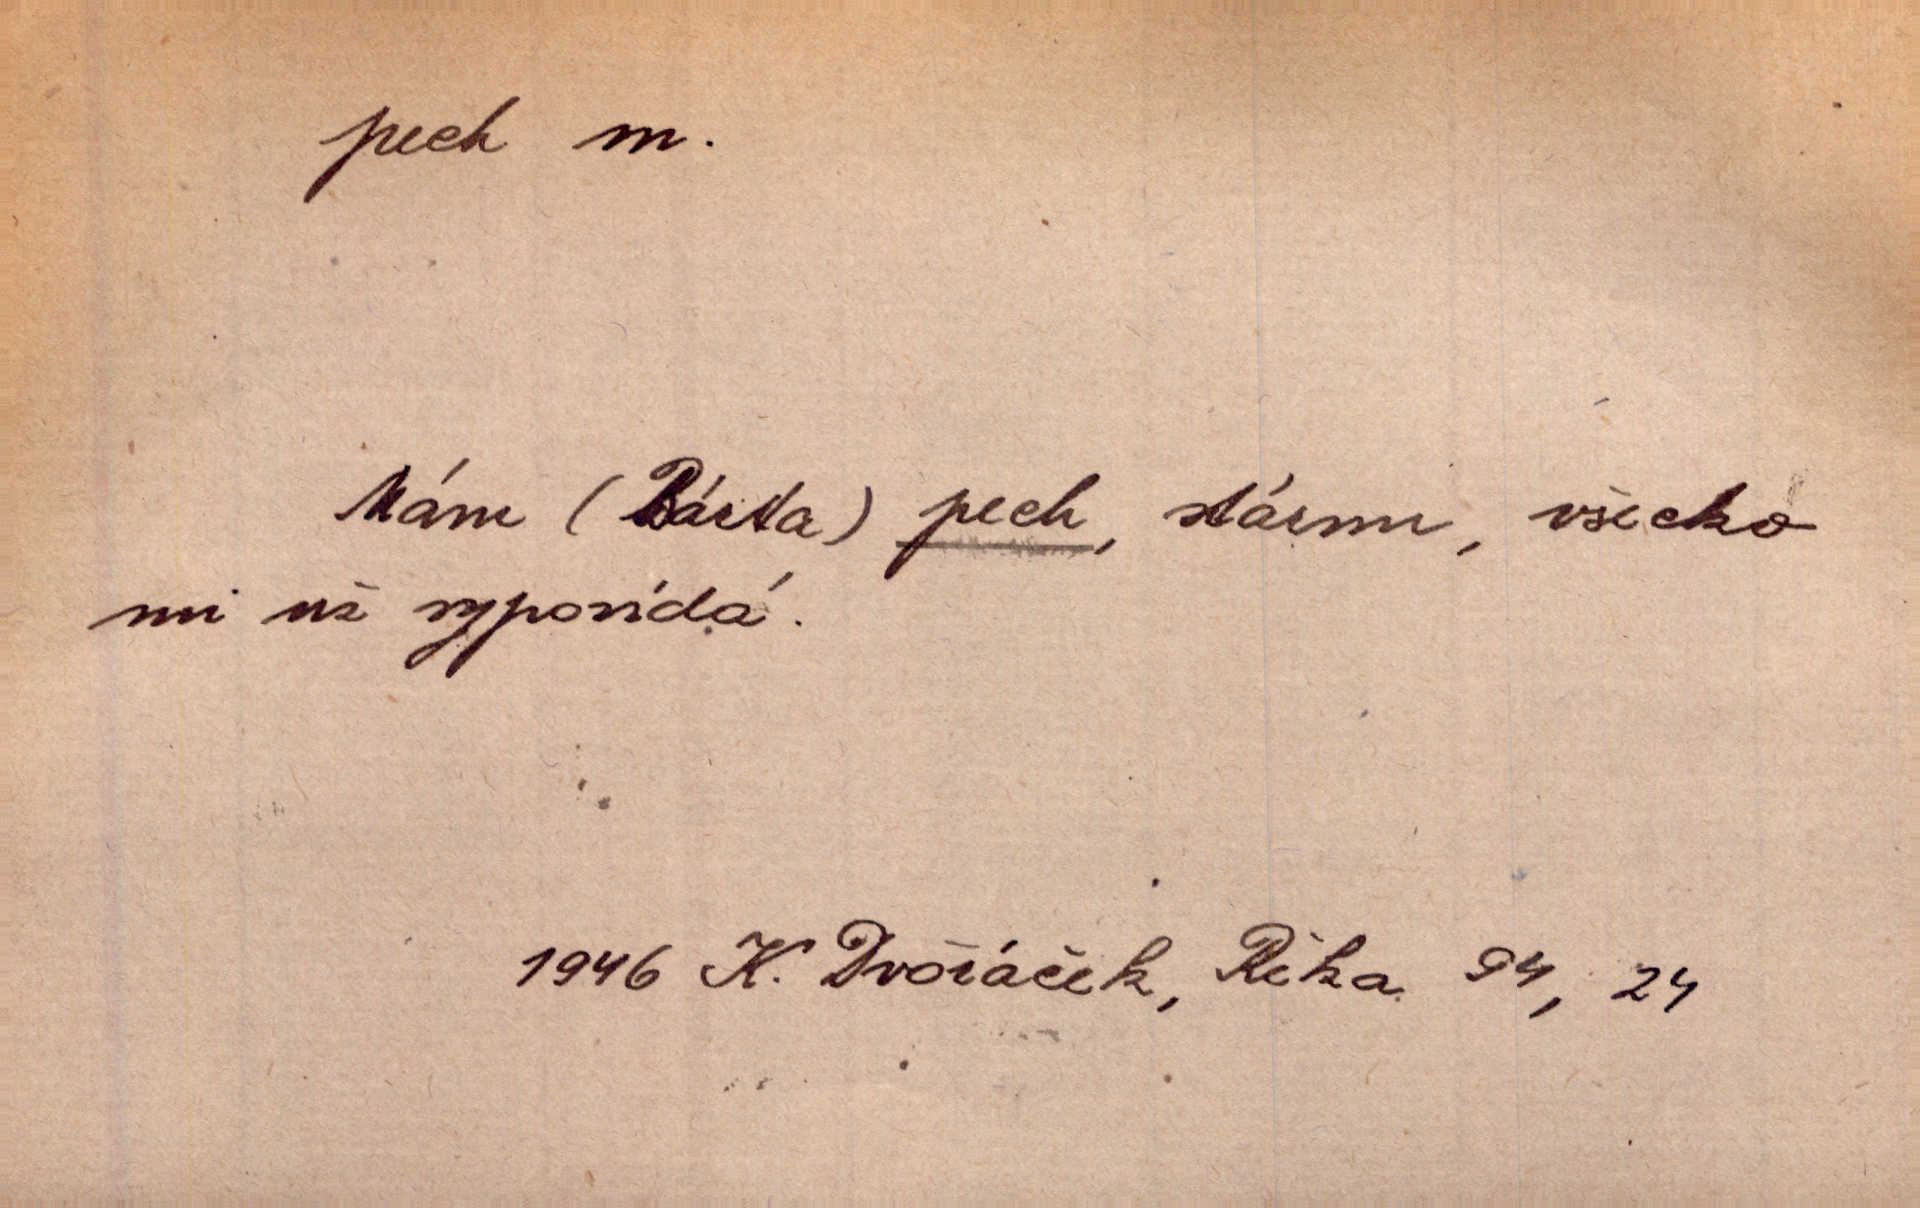 pech m.
Mám (Bárta) pech, stárnu, všecko
mi už vypovídá.
1946 K. Dvořáček, Řeka 94, 24